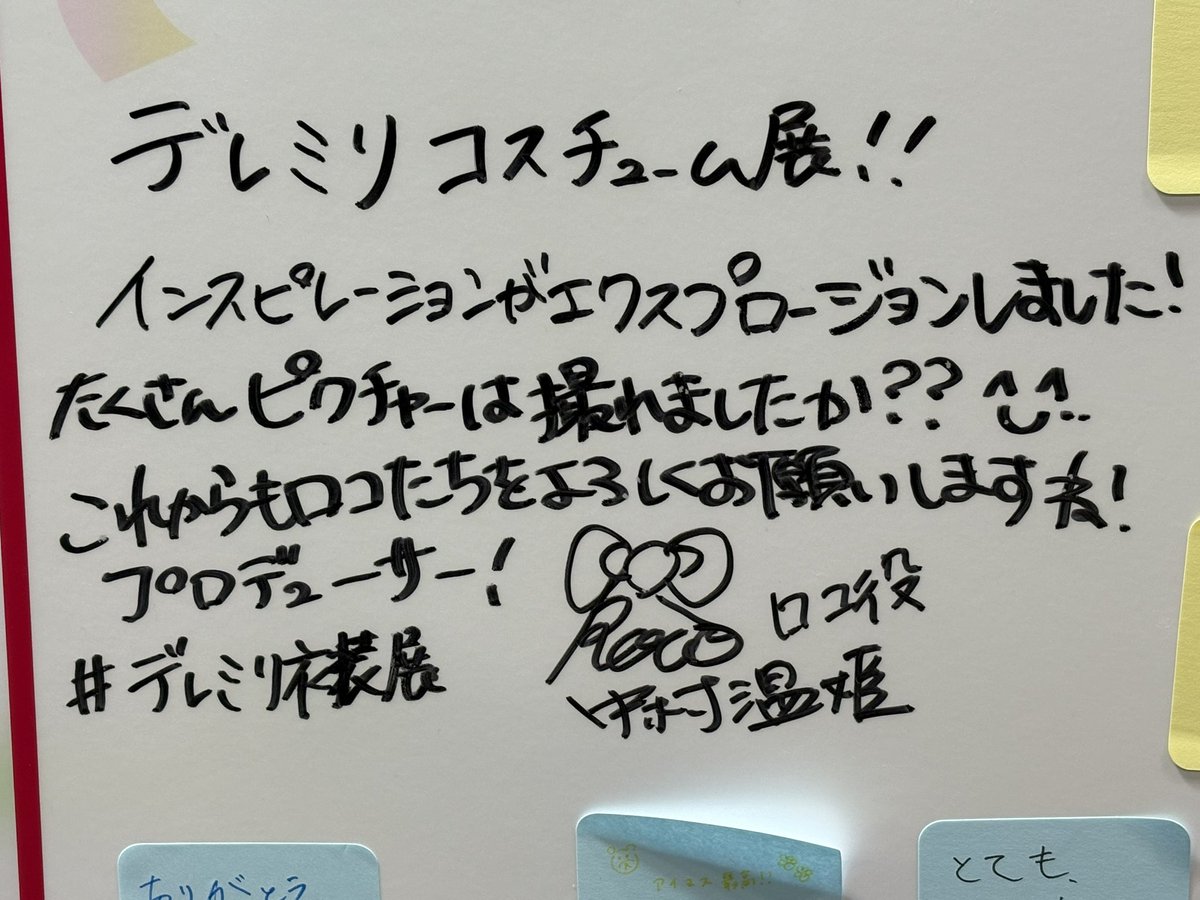 デレミリコスチューム展!!
インスピレーションがエクスプロージョンしました!
たくさんピクチャーは撮れましたか??
これからもロコたちをよろしくお願いしますね!
プロデューサー!
Roco ロコ役
#デレミリ衣装展
中村温姫
ありがとう
最高!!
とても、